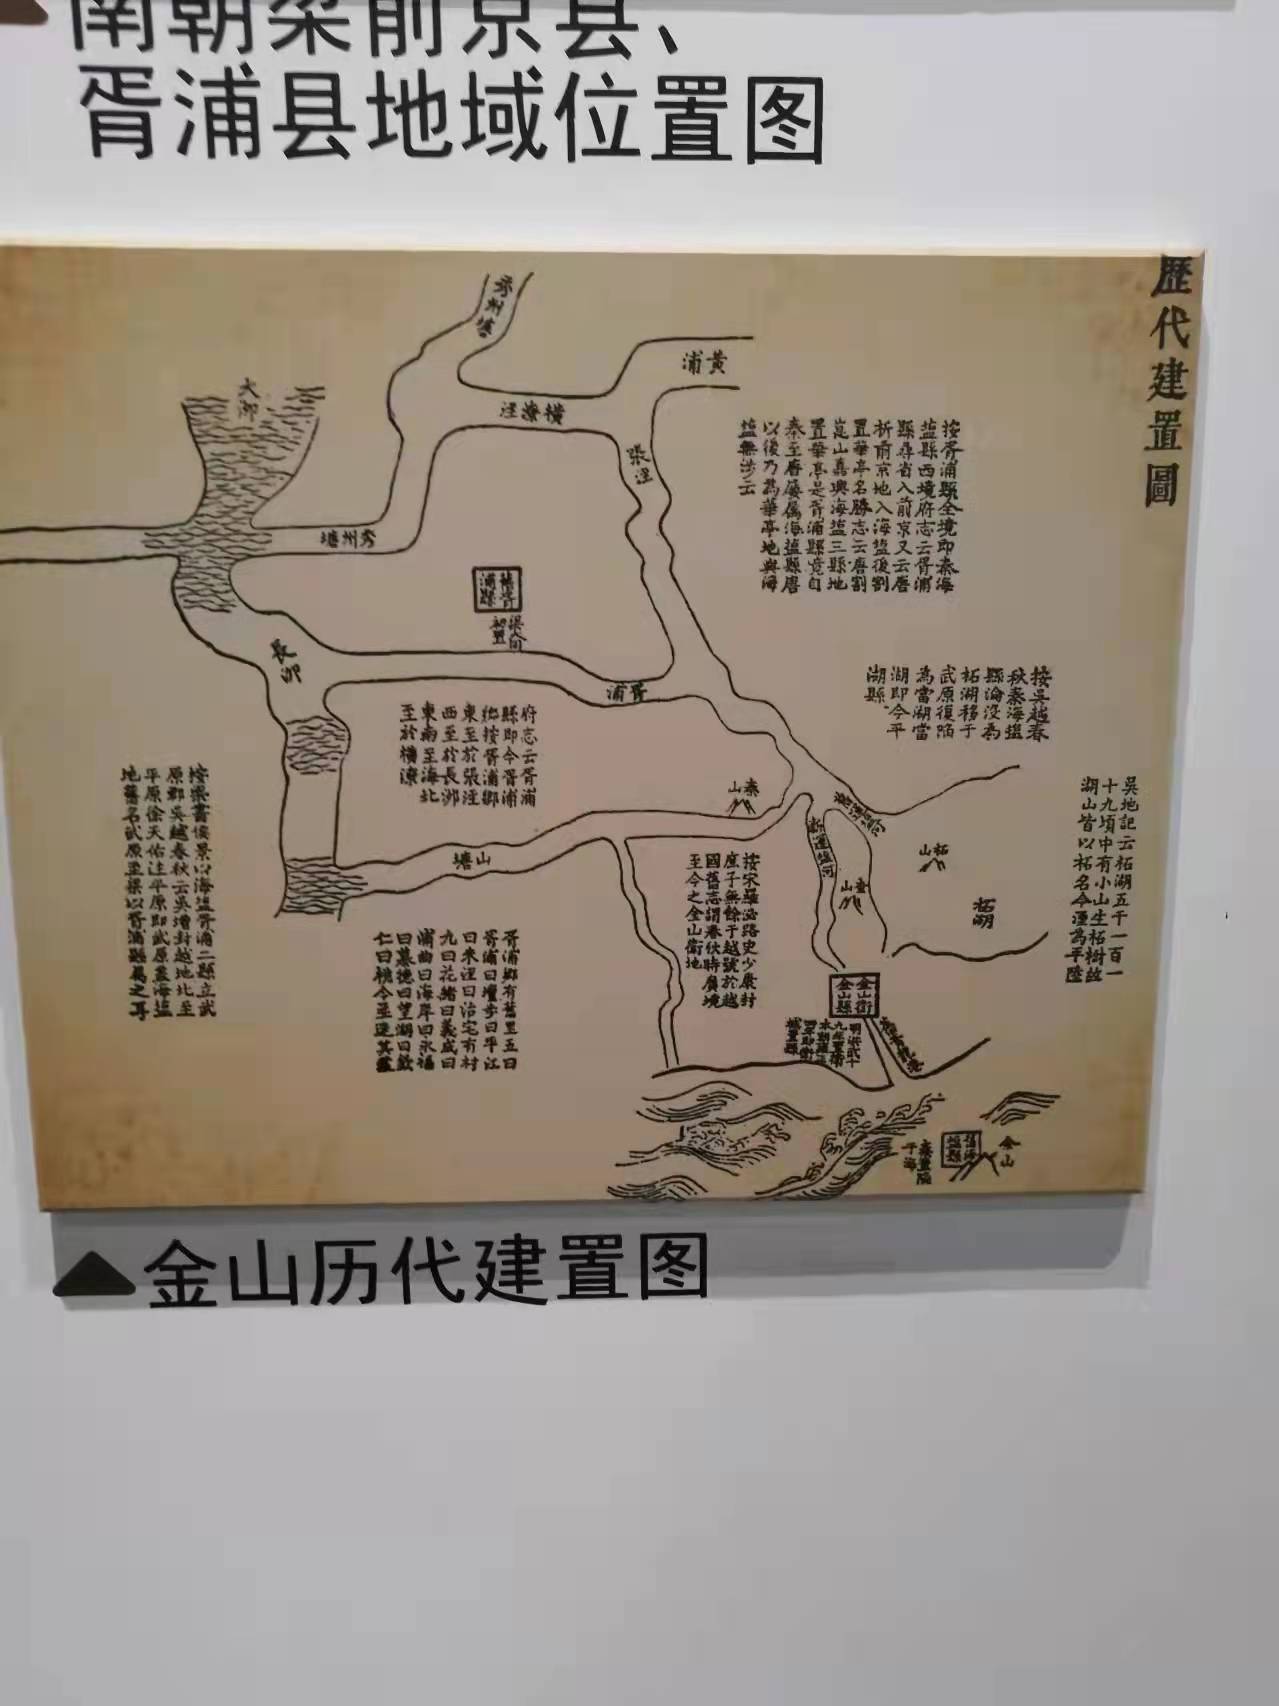 南朝梁前京县、
胥浦县地域位置图
歷代建置圖
秀州塘
黃浦
橫潦涇
張涇
大泖
秀州塘
舊胥
浦縣
梁大同
初置
長泖
胥浦
按胥浦縣全境即秦海
鹽縣西境府志云胥浦
縣尋省入前京又云唐
析前京地入海鹽後割
置華亭名勝志云唐割
崑山嘉興海鹽三縣地
置華亭是胥浦縣境自
秦至唐屢屬海鹽縣唐
以後乃爲華亭地與海
鹽無涉云
按吳越春
秋秦海鹽
縣淪沒為
柘湖移于
武原復陷
為當湖當
湖即今平
湖縣
府志云胥浦
縣即今胥浦
鄉按胥浦鄉
東至於張涇
西至於長泖
東南至海北
至於橫潦
吳地記云柘湖五千一百一
十九頃中有小山生柘樹故
湖山皆以柘名今湮為平陸
按梁書侯景以海鹽胥浦二縣立武
原郡吳越春秋云吳增封越地北至
平原徐天佑注平原即武原蓋海鹽
地舊名武原至梁以胥浦縣屬之耳
秦山
山塘
新運鹽河
查山
柘山
柘湖
按宋羅泌路史少康封
庶子無餘于越號於越
國舊志謂春伙時廣境
至今之金山衛地
胥浦鄉有舊里五曰
胥浦曰壇步曰平江
曰朱涇曰治宅有村
九曰花緒曰義成曰
浦曲曰海岸曰永福
曰慕德曰望湖曰欽
仁曰
金山衛
金山縣
明洪武十
九年置衛
舊海
鹽縣
金山
秦置陷
于海
▲金山历代建置图